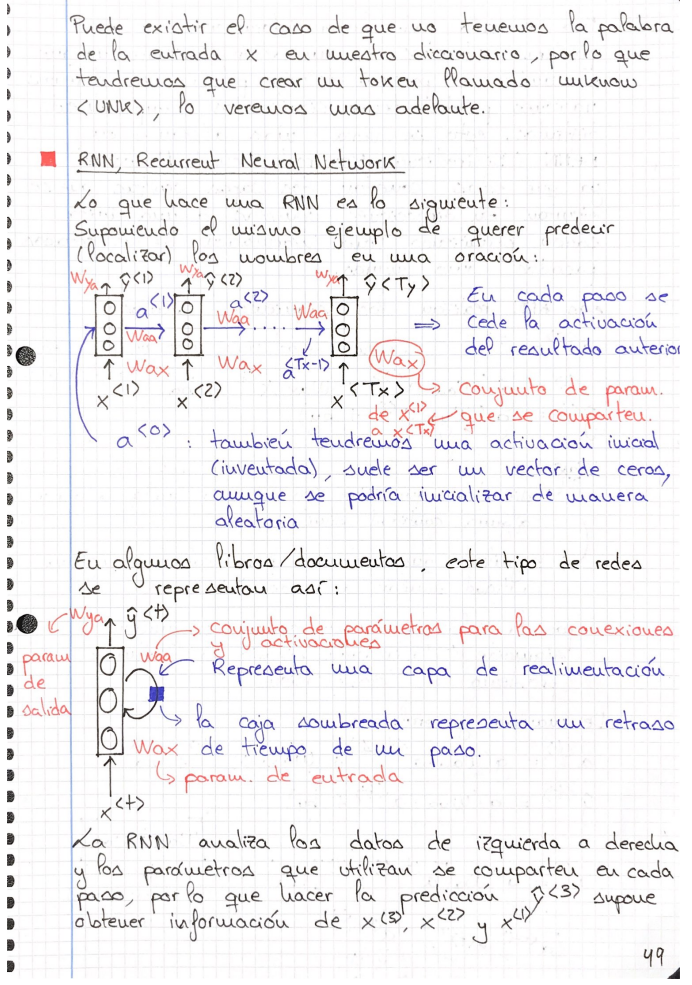 Puede existir el caso de que no tenemos la palabra
de la entrada x en nuestro diccionario, por lo que
tendremos que crear un token llamado unknow
<UNK>, lo veremos mas adelante.
RNN, Recurrent Neural Network
Lo que hace una RNN es lo siguiente:
Suponiendo el mismo ejemplo de querer predecir
(localizar) los nombres en una oración:
Wya ŷ<1> Wya ŷ<2> Wya ŷ<Ty>
a<1> a<2> En cada paso se
Waa Waa ..... Waa ⇒ cede la activación
a<Tx-1> del resultado anterior
Wax Wax Wax
x<1> x<2> x<Tx> conjunto de param.
de x<1> que se comparten.
a x<Tx>
a<0> : tambień tendremos una activación inicial
(inventada), suele ser un vector de ceros,
aunque se podría inicializar de manera
aleatoria
En algunos libros/documentos, este tipo de redes
se representan así:
Wya ŷ<t>
conjunto de parámetros para las conexiones
y activaciones
param de salida
Waa Representa una capa de realimentación
la caja sombreada representa un retraso
Wax de tiempo de un paso.
param. de entrada
x<t>
La RNN analiza los datos de izquierda a derecha
y los parámetros que utilizan se comparten en cada
paso, por lo que hacer la predicción ŷ<3> supone
obtener información de x<3>, x<2> y x<1>
49